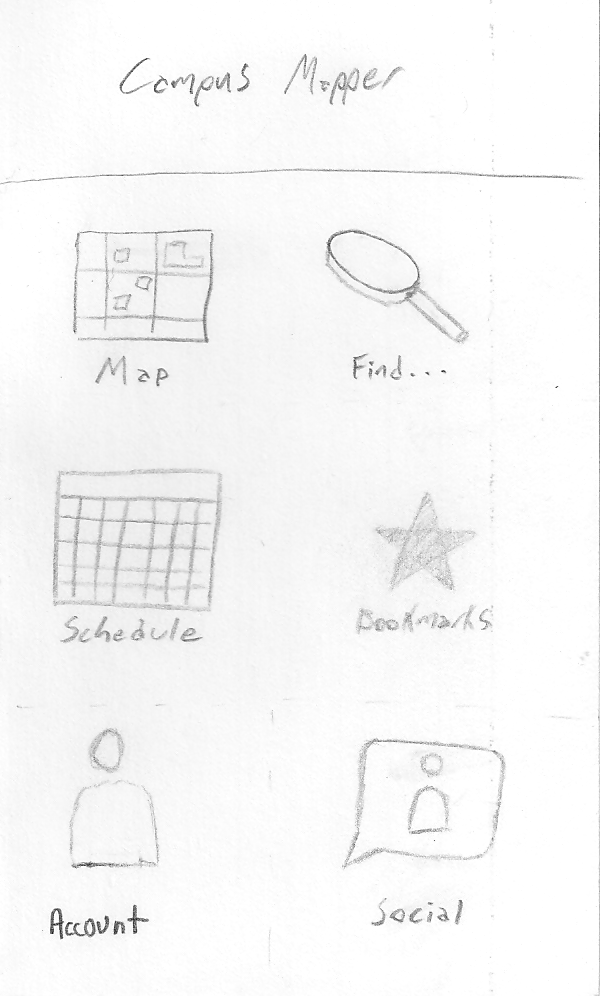 Campus Mapper
Map
Find...
Schedule
Bookmarks
Account
Social